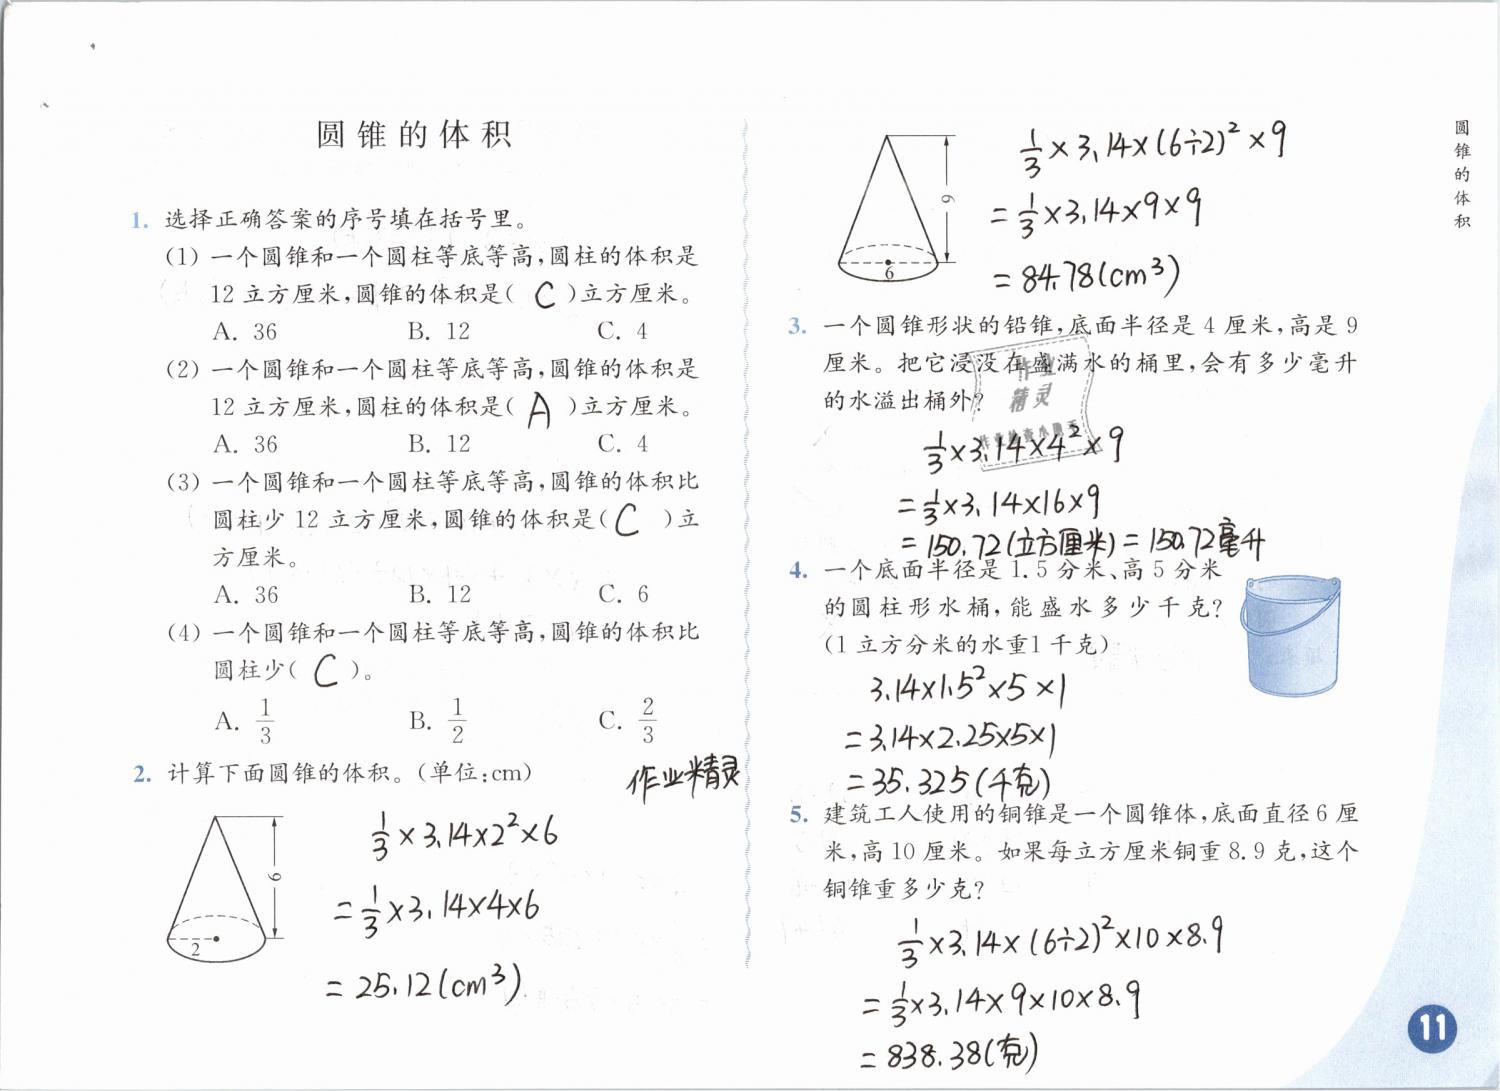 圆锥的体积
1. 选择正确答案的序号填在括号里。
(1) 一个圆锥和一个圆柱等底等高,圆柱的体积是
12立方厘米,圆锥的体积是( C )立方厘米。
A. 36 B. 12 C. 4
(2) 一个圆锥和一个圆柱等底等高,圆锥的体积是
12立方厘米,圆柱的体积是( A )立方厘米。
A. 36 B. 12 C. 4
(3) 一个圆锥和一个圆柱等底等高,圆锥的体积比
圆柱少 12 立方厘米,圆锥的体积是( C )立
方厘米。
A. 36 B. 12 C. 6
(4) 一个圆锥和一个圆柱等底等高,圆锥的体积比
圆柱少( C )。
A. 1/3 B. 1/2 C. 2/3
2. 计算下面圆锥的体积。(单位:cm)
作业精灵
6
2
1/3×3.14×2²×6
=1/3×3.14×4×6
=25.12(cm³)
9
6
1/3×3.14×(6÷2)²×9
=1/3×3.14×9×9
=84.78(cm³)
3. 一个圆锥形状的铅锥,底面半径是 4 厘米,高是 9
厘米。把它浸没在盛满水的桶里,会有多少毫升
的水溢出桶外?
作业
精灵
1/3×3.14×4²×9
=1/3×3.14×16×9
=150.72(立方厘米)=150.72毫升
4. 一个底面半径是 1.5 分米、高 5 分米
的圆柱形水桶,能盛水多少千克?
(1立方分米的水重1千克)
3.14×1.5²×5×1
=3.14×2.25×5×1
=35.325(千克)
5. 建筑工人使用的铜锥是一个圆锥体,底面直径6厘
米,高10厘米。如果每立方厘米铜重8.9克,这个
铜锥重多少克?
1/3×3.14×(6÷2)²×10×8.9
=1/3×3.14×9×10×8.9
=838.38(克)
圆锥的体积
11